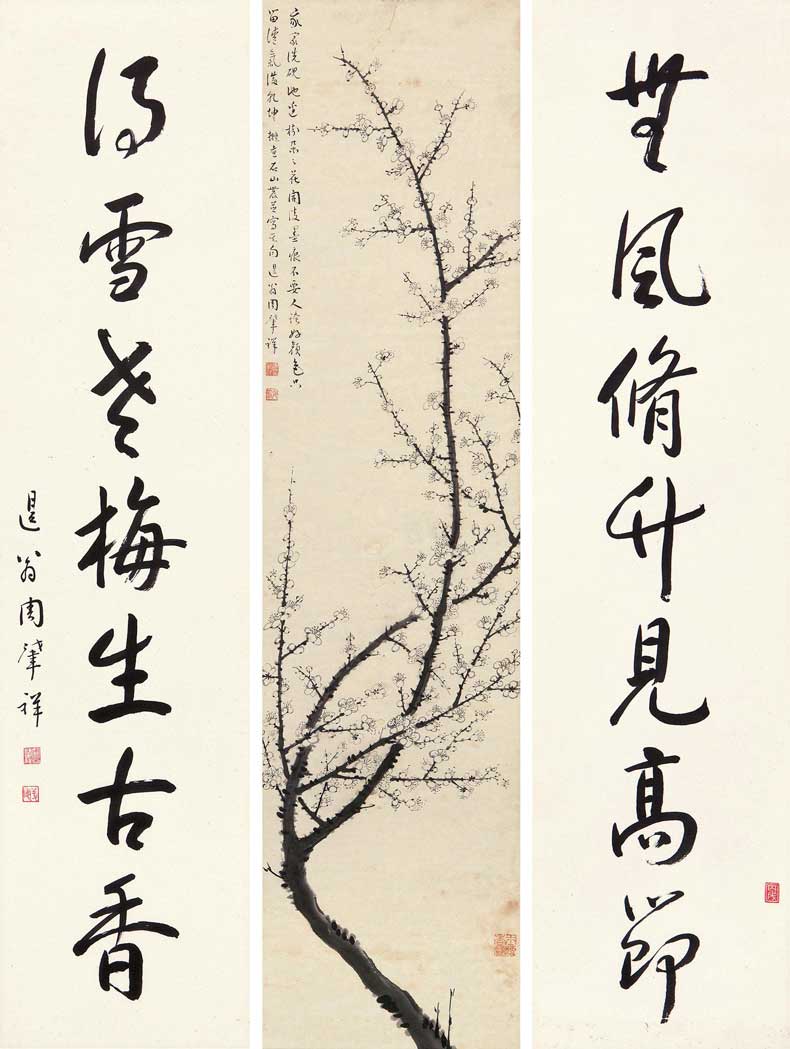 無風脩竹見高節
我家洗硯池邊樹朵々花開淡墨痕不要人誇好顏色只
留清氣滿乾坤 擬煮石山農並寫其句 退翁周肇祥
得雪老梅生古香
退翁周肇祥